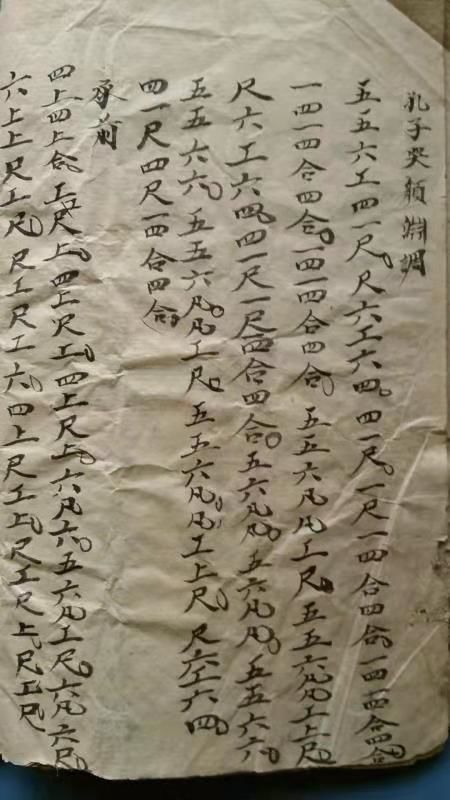 孔子哭顏淵調
五五六工四一尺尺六工六四四一尺一尺一四合四合一四一四合四合
一四一四合四合一四一四合四合五五六凡凡工尺五五六凡凡工上尺
尺六工六四四一尺一尺一四合四合五六凡凡五六凡凡五五六六
五五六六五五六凡凡工尺五五六凡凡工上尺尺六工六四
四一尺四尺一四合四合
承前
四上四上合工尺上四上尺工四上尺上六凡六五六凡工尺六凡六尺
六上上尺工尺尺工尺工六四上尺工上尺工尺上尺工尺